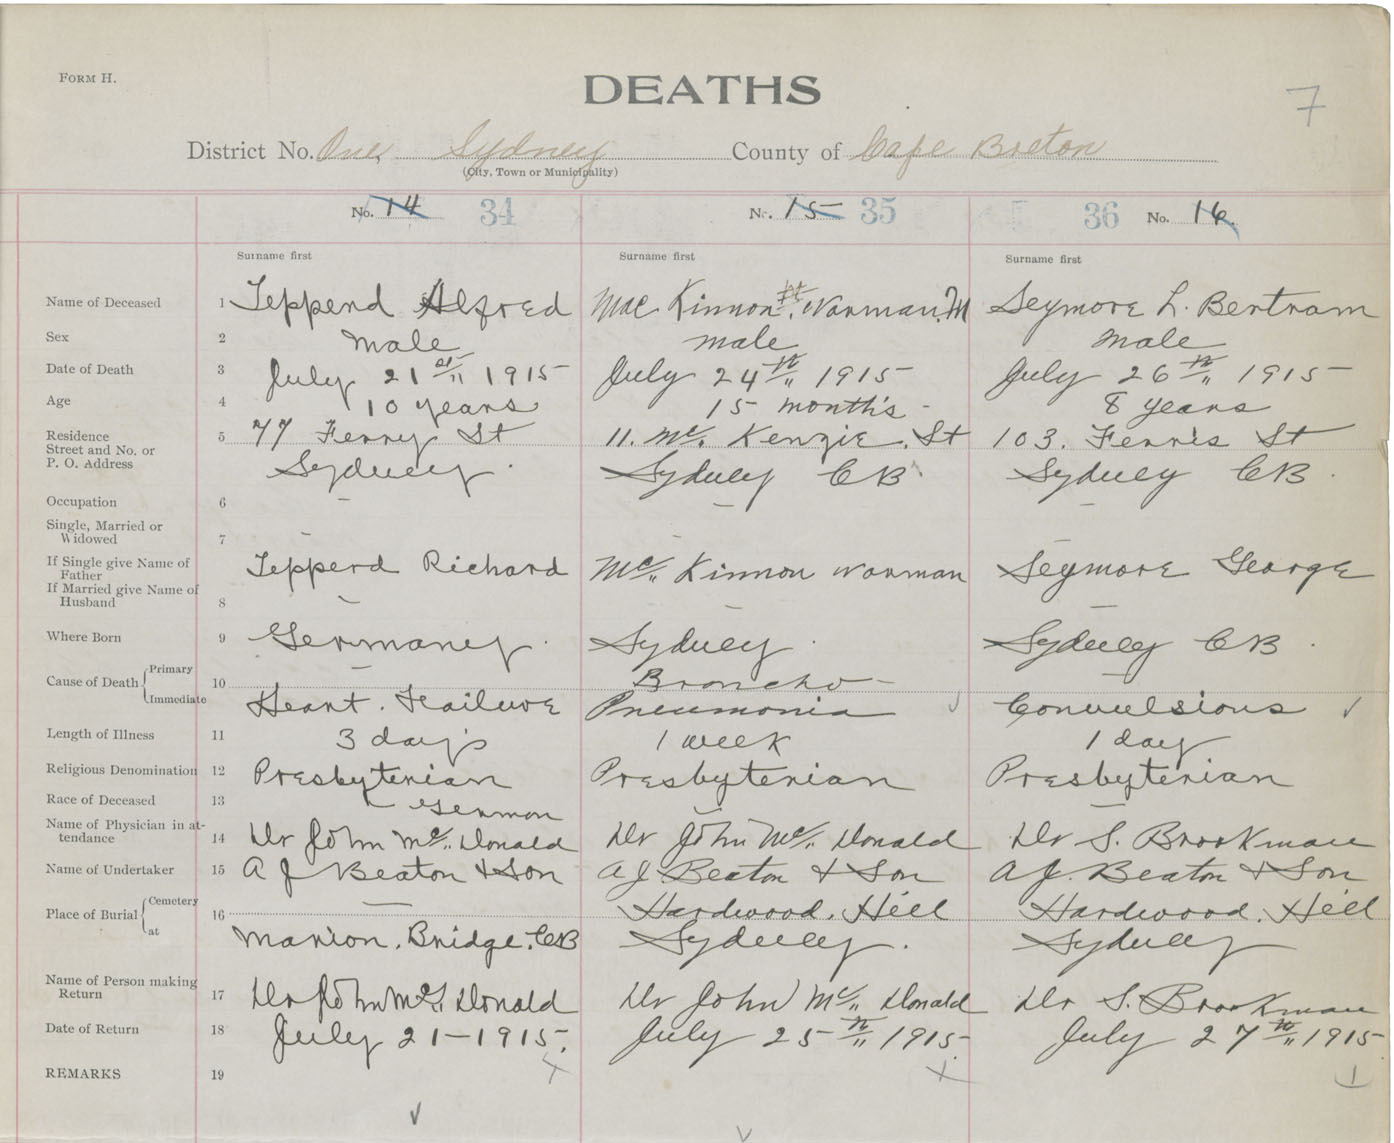 FORM H.
DEATHS
7
District No. One, Sydney County of Cape Breton
(City, Town or Municipality)
No. 14 34 No. 15 35 36 No. 16
Surname first Surname first Surname first
Name of Deceased 1 Teppend Alfred Mac Kinnon, Norman. M Seymore L. Bertram
Sex 2 male male male
Date of Death 3 July 21st 1915 July 24th 1915 July 26th 1915
Age 4 10 years 15 months - 8 years
Residence 5 77 Ferry St 11. Mc Kenzie. St 103. Ferris St
Street and No. or
P. O. Address Sydney. Sydney CB. Sydney CB.
Occupation 6 — — —
Single, Married or
Widowed 7 - —
If Single give Name of
Father Tepperd Richard Mc Kinnon Norman Seymore George
If Married give Name of
Husband 8 — — —
Where Born 9 Germany. Sydney. Sydney CB.
Cause of Death Primary 10 — Broncho-
Immediate Heart. Failure Pneumonia Convulsions
Length of Illness 11 3 days 1 week 1 day
Religious Denomination 12 Presbyterian Presbyterian Presbyterian
Race of Deceased 13 German — —
Name of Physician in at-
tendance 14 Dr John Mc Donald Dr John Mc Donald Dr S. Brookman
Name of Undertaker 15 A J Beaton & Son A J. Beaton & Son A J. Beaton & Son
Place of Burial Cemetery 16 — Hardwood. Hill Hardwood. Hill
at Marion. Bridge. CB Sydney. Sydney
Name of Person making
Return 17 Dr John Mc Donald Dr John Mc Donald Dr S. Brookman
Date of Return 18 July 21-1915. July 25th 1915. July 27th 1915
REMARKS 19